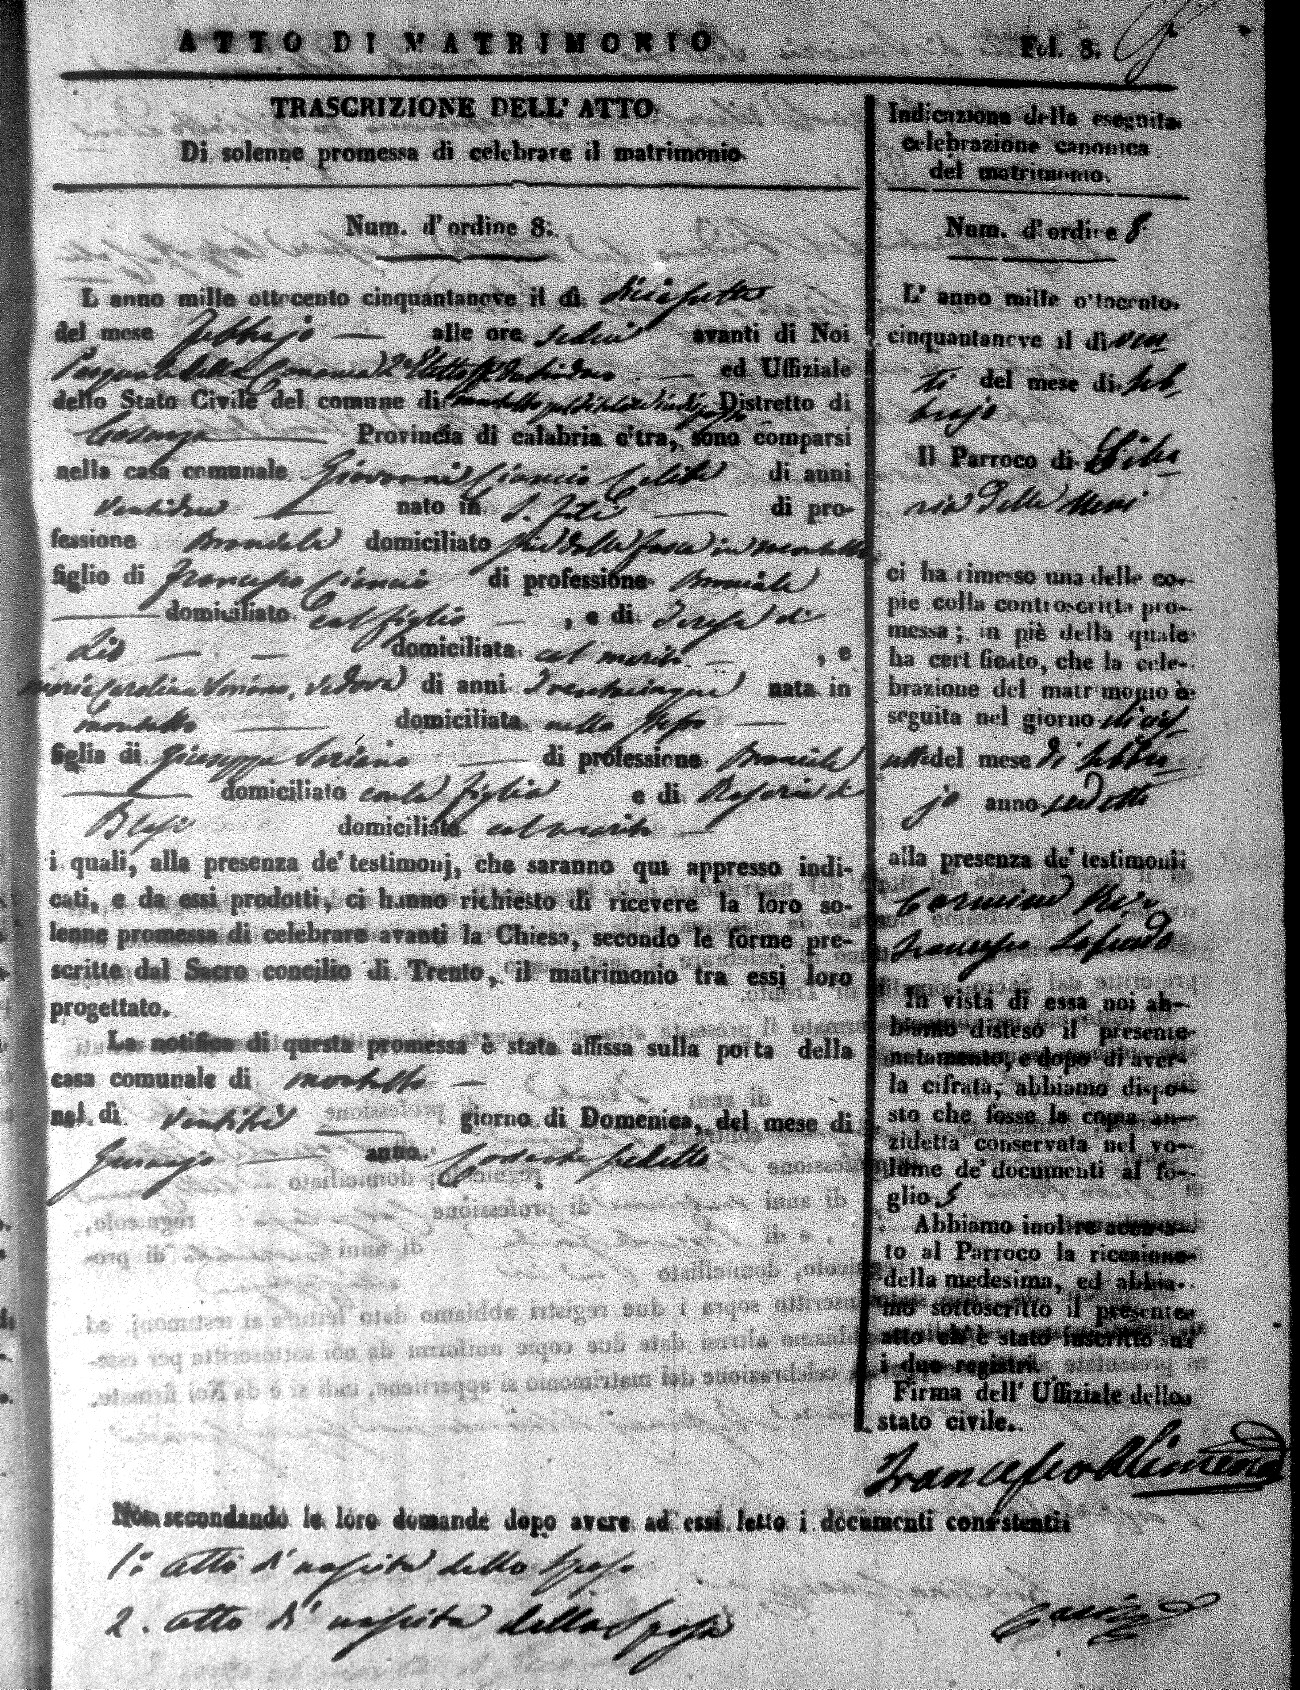 ATTO DI MATRIMONIO
Fol. 8.
TRASCRIZIONE DELL' ATTO
Di solenne promessa di celebrare il matrimonio.
Num. d'ordine 8:
L anno mille ottocento cinquantanove il dì diciasette
del mese Febbrajo alle ore sedici avanti di Noi
ed Uffiziale
dello Stato Civile del comune di Distretto di
Cosenza Provincia di calabria citra, sono comparsi
nella casa comunale Giovanni Ciancio Celeste di anni
Ventidue nato in S. Fili di pro-
fessione Bracciale domiciliato in Montalto
figlio di Francesco Ciancio di professione Bracciale
domiciliato col figlio , e di Teresa di
Lio domiciliata col marito , e
Maria Carolina Soriano, Vedova di anni Trentacinque nata in
Montalto domiciliata nello stesso
figlia di Giuseppe Soriano di professione Bracciale
domiciliato con la figlia e di Rosaria de
Blasi domiciliata col marito
i quali, alla presenza de' testimonj, che saranno qui appresso indi-
cati, e da essi prodotti, ci hanno richiesto di ricevere la loro so-
lenne promessa di celebrare avanti la Chiesa, secondo le forme pre-
scritte dal Sacro concilio di Trento, il matrimonio tra essi loro
progettato.
La notifica di questa promessa è stata affissa sulla porta della
casa comunale di Montalto
nel dì Ventitre giorno di Domenica, del mese di
Gennajo anno Corrente sudetto
Noi secondando le loro domande dopo avere ad essi letto i documenti consistenti
1: atto di nascita dello Sposo
2. atto di nascita della Sposa
Indicazione della eseguita
celebrazione canonica
del matrimonio.
Num. d'ordine 8
L' anno mille ottocento
cinquantanove il dì ven
ti del mese di Feb
brajo
Il Parroco di
ci ha rimesso una delle co-
pie colla controscritta pro-
messa; in piè della quale
ha certificato, che la cele-
brazione del matrimonio è
seguita nel giorno dicias
sette del mese di Febbra
jo anno sudetto
alla presenza de' testimonii
Carmine
Francesco
In vista di essa noi ab-
biamo disteso il presente
notamento, e dopo di aver-
la cifrata, abbiamo dispo-
sto che fosse la copia an-
zidetta conservata nel vo-
lume de' documenti al fo-
glio 5
Abbiamo inoltre accusa-
to al Parroco la ricezione
della medesima, ed abbia-
mo sottoscritto il presente
atto ch'è stato inscritto su'
i due registri.
Firma dell' Uffiziale dello
stato civile.
Francesco Alimena